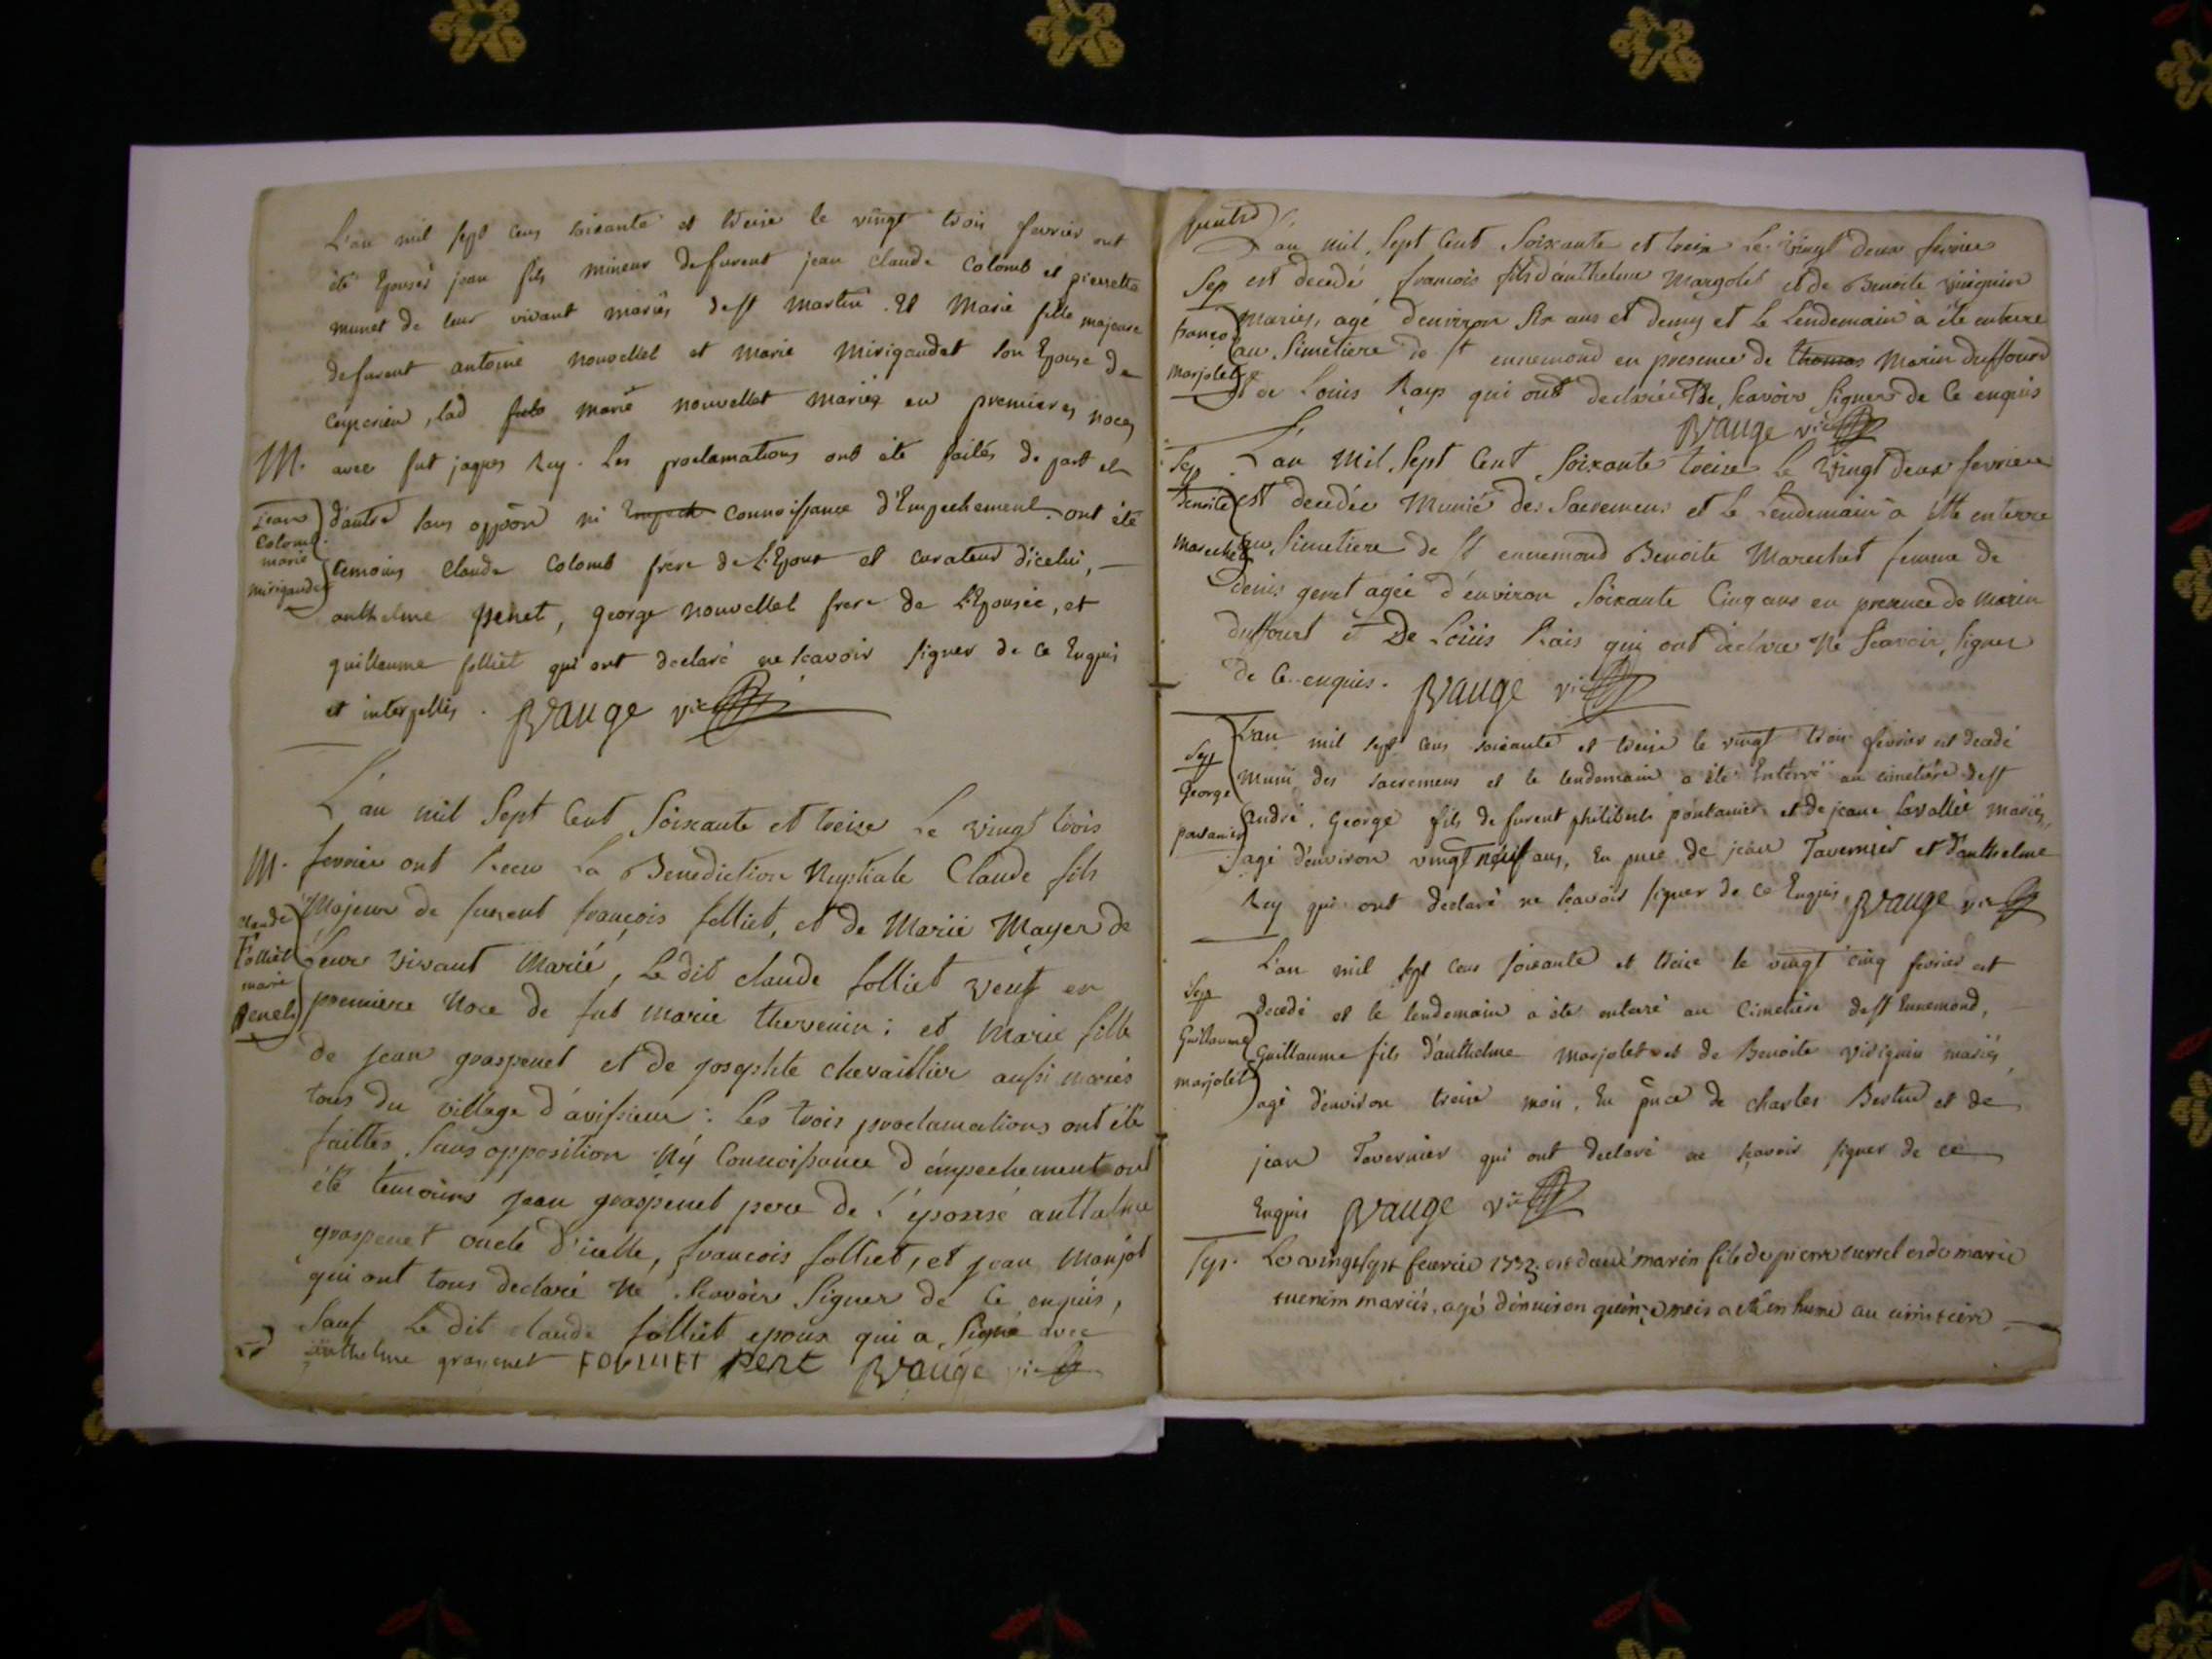 L'an mil sept cens soixante et treise le vingt trois fevrier ont
été Epousés jean fils mineur defurent jean claude Colomb et pierrette
munet de leur vivant mariés de st martin. Et Marie fille majeure
defurent antoine nouvellet et marie mirigaudet son Epouse de
Ceyzerieu, lad marie nouvellet mariés en premieres noces
M. avec fut jaques Rey. Les proclamations ont été faites de part et
jean
Colomb
marie
mirigaudet
d'autre sans oppôon ni Empech connoissance d'Empechement. ont été
temoins Claude Colomb frere de L'Epoux et curateur d'icelui,
anthelme penet, George nouvellet frere de L'Epousée, et
guillaume folliet qui ont declaré ne scavoir signer de ce Enquis
et interpellés. BVauge vic
L'an mil Sept Cent Soixante et treize Le vingt trois
M. fevrier ont Recu La Benediction Nuptiale Claude fils
claude
Folliet
marie
penet
Majeur de furent françois folliet, et de Marie Mayer de
Leur vivant Marié, Le dit claude folliet veuf en
premiere Noce de fut marie thevenin; et Marie fille
de jean graspenet et de josephte chevaillier aussi mariés
tous du village d'avissieu: les trois proclamations ont été
faittes sans opposition Ny Connoissance d'empechement ont
été temoins jean graspenet pere de L'épousé anthelme
graspenet oncle d'icelle, francois folliet, et jean Monjot
qui ont tous declaré Ne Scavoir Signer de Ce enquis,
Sauf Le dit claude folliet epoux qui a Signé avec
anthelme graspenet FOLLIET pent BVauge vic
quatre
L'an mil Sept Cent Soixante et treise Le vingt deux fevrier
Sep est decedé francois fils d'anthelme Margolet et de Benoite vuiquin
franço
marjolet
Mariés, agé d'environ six ans et demy et Le Lendemain à été enterre
au Simetiere de st ennemond en presence de thomas Marin duffourd
et de Louis Rays qui ont declaré Ne scavoir signer de Ce enquis
BVauge vic
Sep L'an Mil Sept Cent Soixante treise Le Vingt deux fevrier
Benoite
marechet
est decedée Munie des Sacremens et Le Lendemain à étté enterre
au Simetiere de st ennemond Benoite Marechet femme de
denis genet agée d'environ Soixante Cinq ans en presence de marin
duffourt et De Loüis Rais qui ont declare Ne Scavoir, signer
de Ce enquis. BVauge vic
Sep
George
pontanier
L'an mil sept cens soixante et treise le vingt trois fevrier est decedé
muni des sacremens et le lendemain a été Enterré au cimetière de st
andré, George fils de furent philibert pontanier et de jeane Lavallée mariés,
agé d'environ vingt neuf ans, En pnce de jean Tavernier et d'anthelme
Rey qui ont declaré ne scavoir signer de ce Enquis, BVauge vic
Sep
Guillaume
marjolet
L'an mil sept cens soixante et treise le vingt cinq fevrier est
decedé et le lendemain a été enterré au Cimetière de st Ennemond,
Guillaume fils d'anthelme marjolet et de Benoite vidiquin mariés,
agé d'environ treise mois, En pnce de charles Bertin et de
jean Tavernier qui ont declaré ne scavoir signer de ce
Enquis BVauge vic
Sep. Le vingt sept feuvrier 1773 est decedé marin fils de pierre et de marie
mariés, agé d'environ quinze mois a eté inhumé au cimetiere